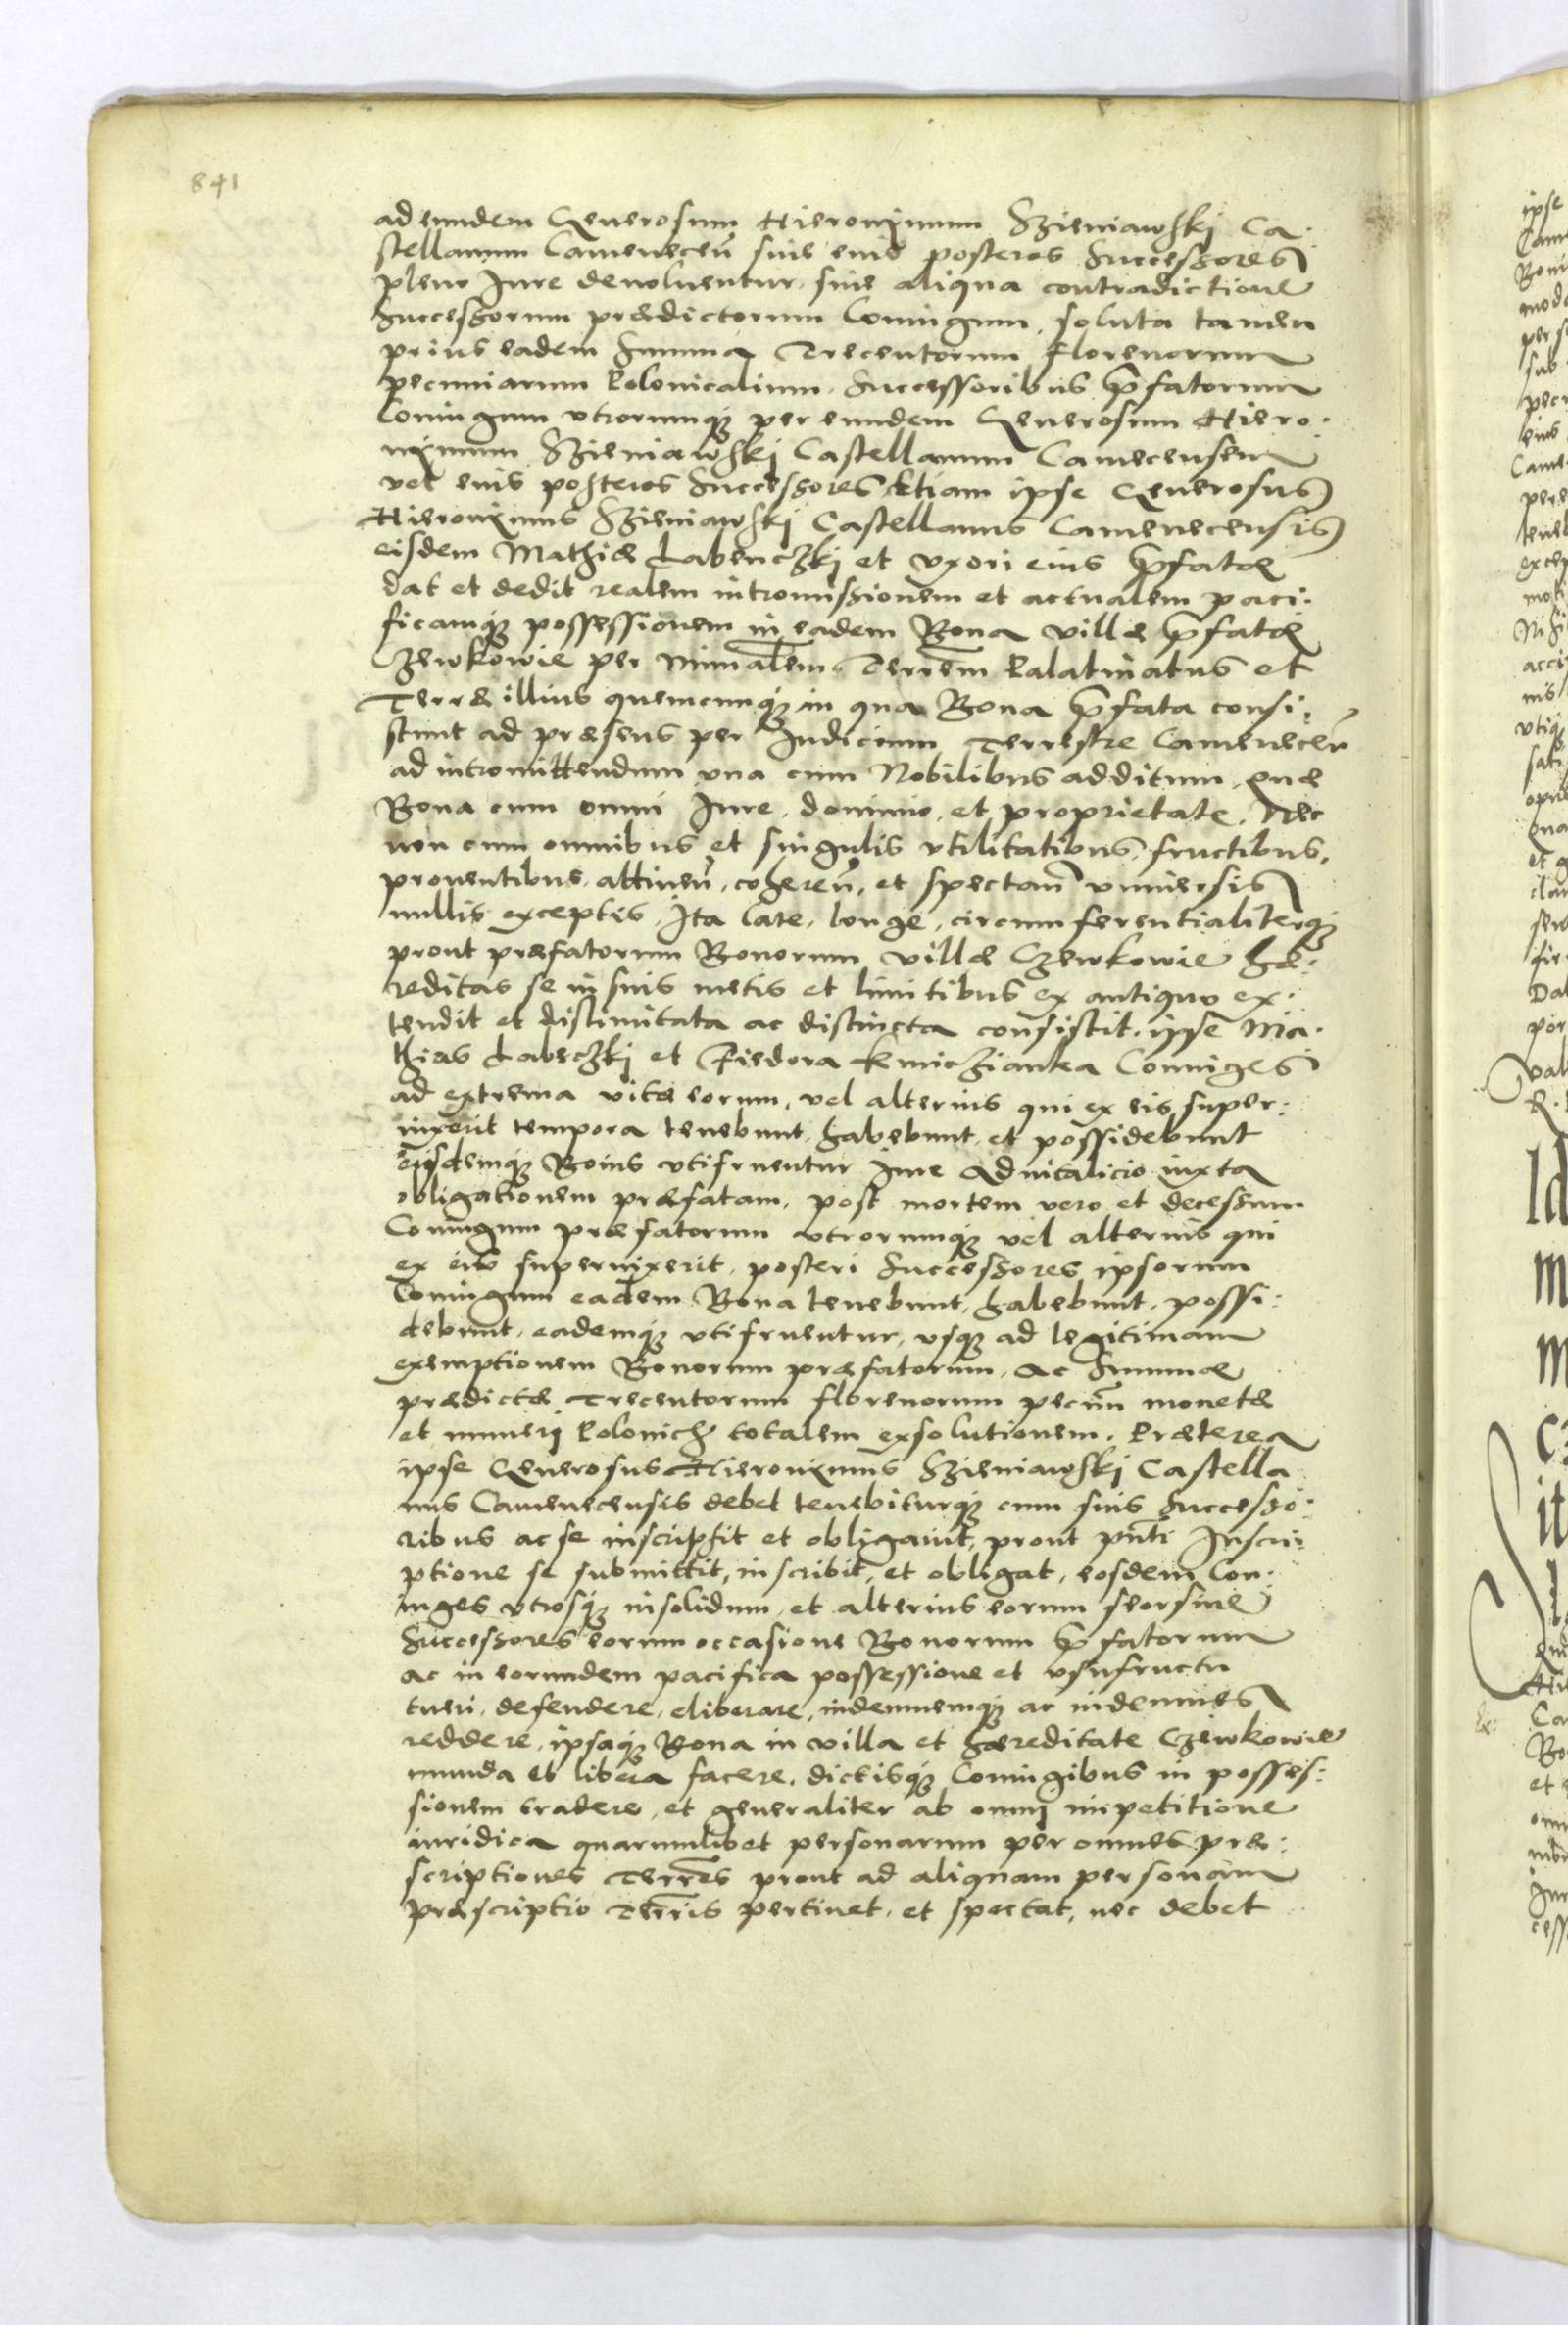 841
ad eundem Generosum Hieronimum Szieniawski Ca:
stellanum Camenecen̄ siue eius posteros Successores
pleno Iure deuoluentur, sine aliqua contradictione
Successorum prædictorum Coniugum, soluta tamen
prius eadem Summa Trecentorum florenorum
pecuniarum Polonicalium. Successoribus p̄fatorum
Coniugum vtrorumq; per eundem Generosum Hiero:
nimum Szieniawski Castellanum Camecensem
vel eius posteros Successores, Etiam ipse Generosus
Hieronimus Szieniawski Castellanus Camenecensis
eisdem Mathiæ Labenczki et vxori eius p̄fatæ
dat et dedit realem intromissionem et actualem paci:
ficamq; possessionem in eadem Bona villæ p̄fatæ
Czewkowie per Minīalem Terrēm Palatinatus et
Terræ illius quemcunq; in qua Bona p̄fata consi:
stunt ad præsens per Iudicium Terrestre Camenecen̄
ad intromittendum vna cum Nobilibus additum, quæ
Bona cum omni Iure, dominio, et proprietate, Nec
non cum omnibus et singulis vtilitatibus, fructibus,
prouentibus, attinen̄, coheren̄, et spectan̄ vniuersis
nullis exceptis, Ita late, longe, circumferentialiterq;
prout præfatorum Bonorum villæ Czewkowie hæ:
reditas se in suis metis et limitibus ex antiquo ex:
tendit et distimitata ac distincta consistit. ipse Ma:
thias Labeczki et Fiedora Kmiczianka Coniuges
ad extrema vitæ eorum, vel alterius qui ex eis super:
uixerit tempora tenebunt, habebunt, et possidebunt
eisdemq; Bonis vtifruentur Iure Aduitalicio iuxta
obligationem præfatam, post mortem vero et decessum
Coniugum præfatorum vtrorumq; vel alterius qui
ex eis superuixerit, posteri Successores ipsorum
Coniugum eadem Bona tenebunt, habebunt, possi:
debunt, eademq; vtifruentur, vsq; ad legitimam
exemptionem Bonorum præfatorum, ac Summæ
prædictæ Trecentorum florenorum pecūn monetæ
et numeri Polonich totalem exsolutionem. Præterea
ipse Generosus Hieronimus Szieniawski Castella
nus Camenecensis debet tenebiturq; cum suis Successo:
ribus ac se inscripsit et obligauit, prout pn̄ti Inscri:
ptione se submittit, inscribit, et obligat, eosdem Con:
iuges vtrosq; insolidum, et alterius eorum seorsiue
Successores eorum occasione Bonorum p̄fatorum
ac in eorundem pacifica possessione et vsufructu
tueri, defendere, eliberare, indemnemq; ac indemnes
reddere, ipsaq; Bona in villa et hæreditate Czewkowie
munda et libera facere, dictisq; Coniugibus in posses:
sionem tradere, et generaliter ab omni impetitione
iuridica quarumlibet personarum per omnes præ:
scriptiones Terrēs prout ad aliquam personam
præscriptio Terrīs pertinet, et spectat, nec debet